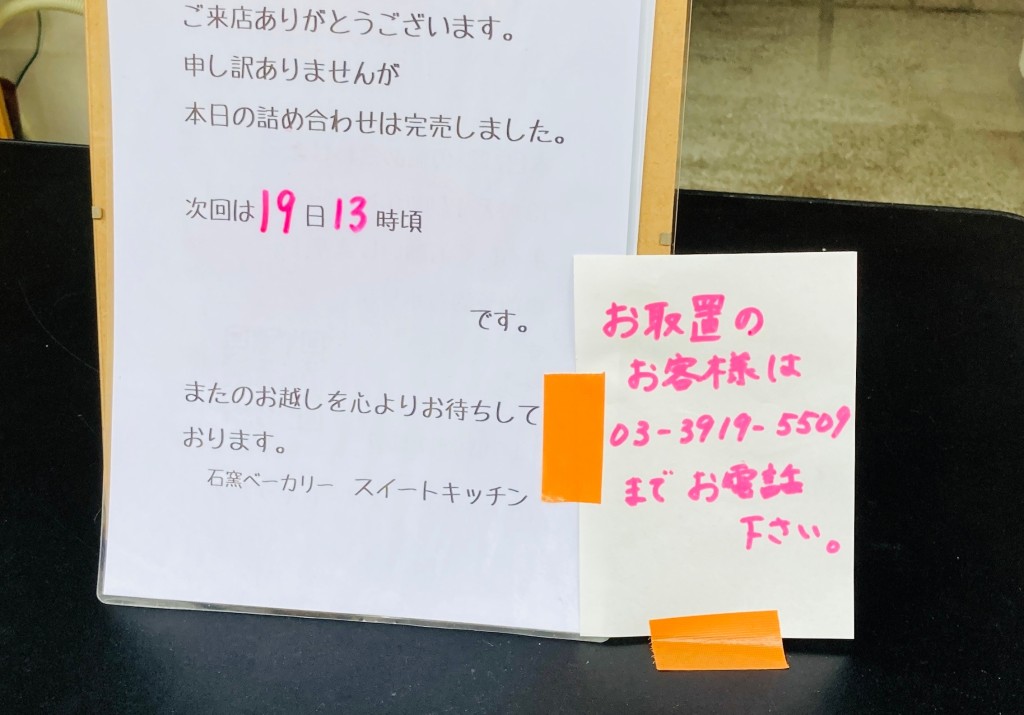 ご来店ありがとうございます。
申し訳ありませんが
本日の詰め合わせは完売しました。
次回は19日13時頃
です。
またのお越しを心よりお待ちして
おります。
石窯ベーカリー スイートキッチン
お取置の
お客様は
03-3919-5509
までお電話
下さい。